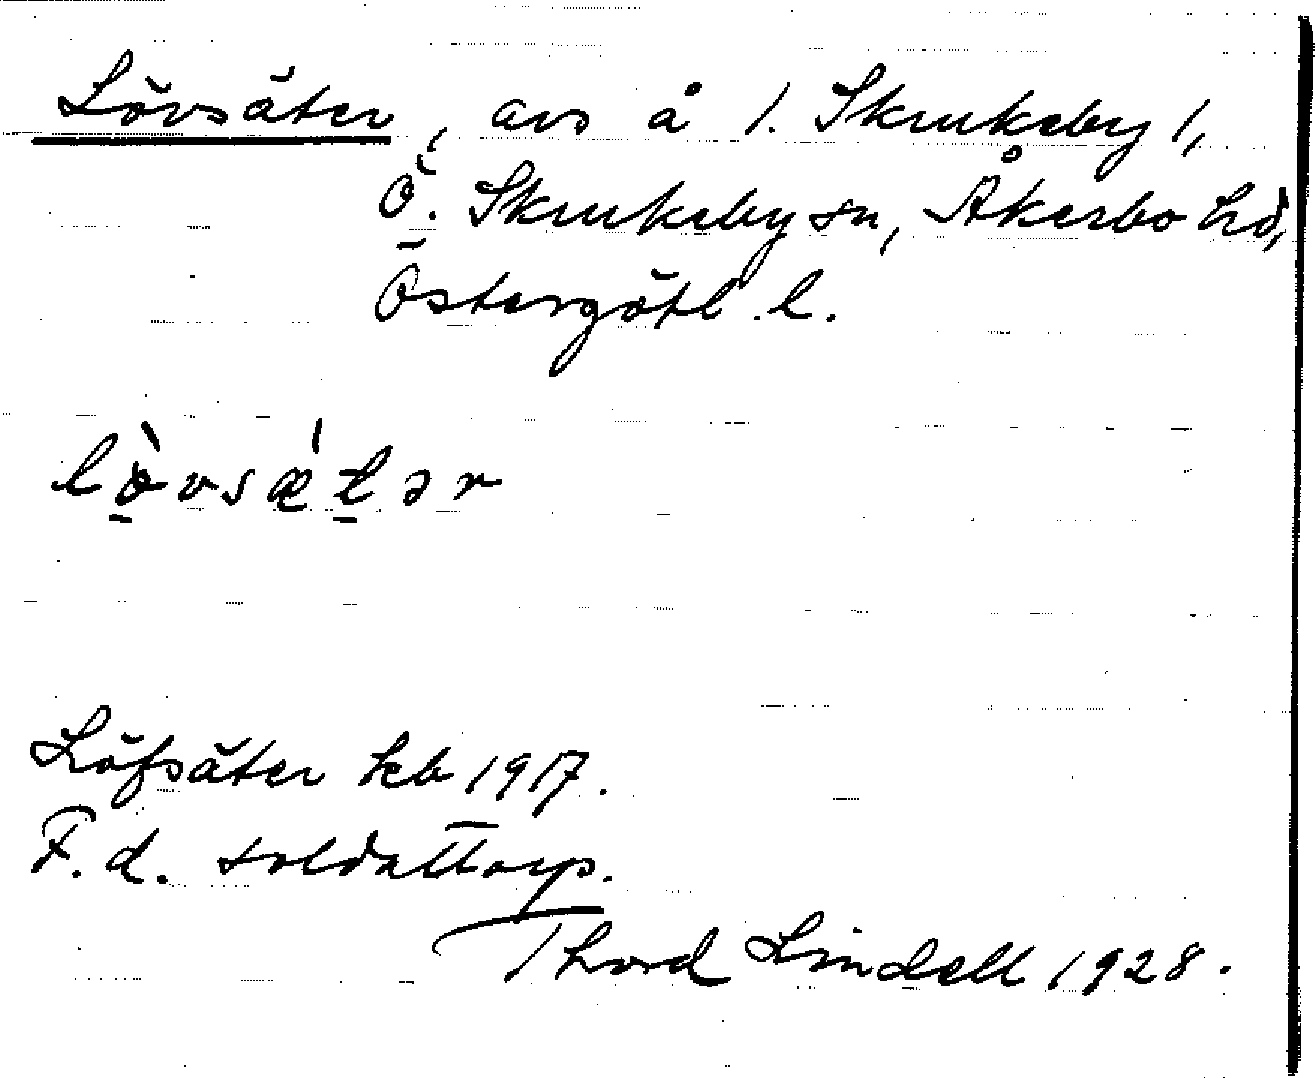 Lövsäter, avs å 1. Skrukeby 1,
Ö. Skrukeby sn, Åkerbo hd,
Östergötl. l.
lö̀vsǽtər
Löfsäter kb 1917.
F. d. soldattorp.
Thord Lindell 1928.